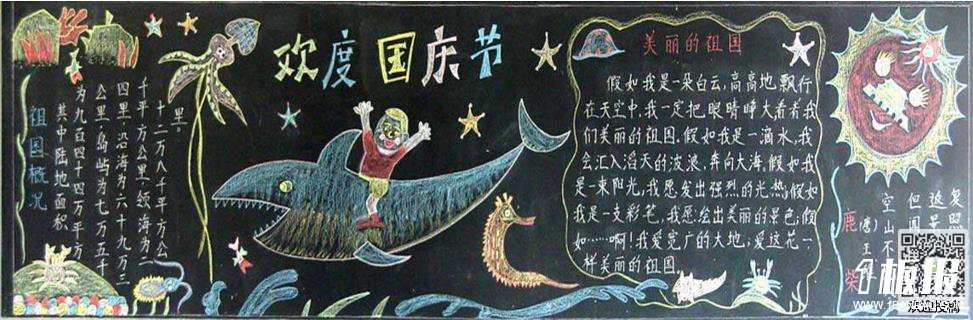 欢度国庆节
祖国概况
其中陆地面积
为九百四十四万平方
公里,岛屿为七万五千
四里,沿海为六十九万三
千平方公里,领海为二
十二万八千平方公
里。
美丽的祖国
假如我是一朵白云,高高地飘行
在天空中,我一定把眼睛睁大看看我
们美丽的祖国。假如我是一滴水,我
会汇入滔天的波浪,奔向大海。假如我
是一束阳光,我愿发出强烈的光热;假如
我是一支彩笔,我愿绘出美丽的景色;假
如……啊!我爱宽广的大地,爱这花一
样美丽的祖国。
鹿柴
(唐)王
空山不
但闻
返景
复照
板报